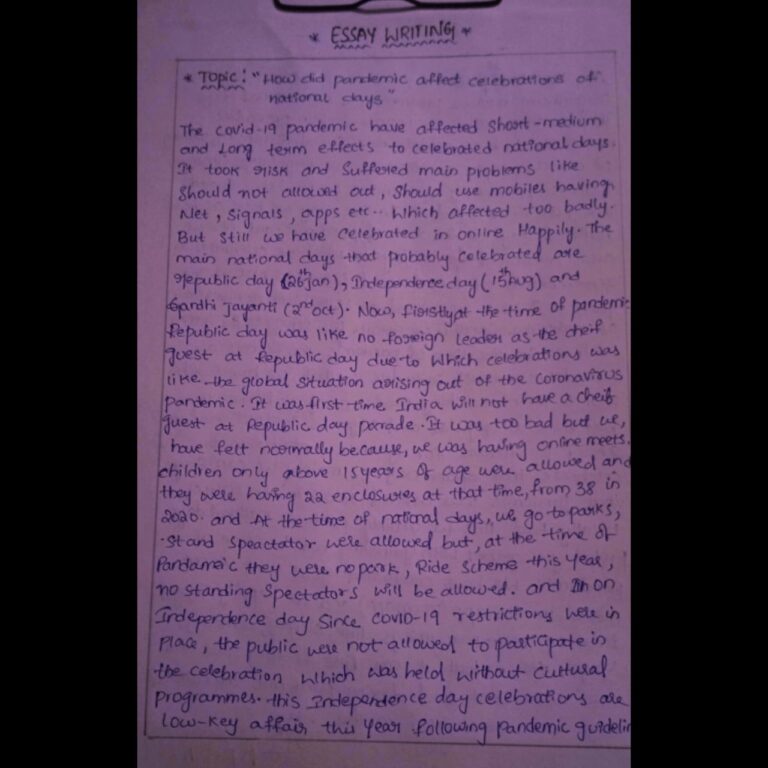 * ESSAY WRITING *
* Topic: "How did pandemic affect celebrations of
national days"
The covid-19 pandemic have affected Short-medium
and Long term effects to celebrated national days.
It took risk and Suffered main problems like
Should not allowed out, Should use mobiles having
Net, Signals, apps etc.. Which affected too badly.
But Still we have celebrated in online Happily. The
main national days that probably celebrated are
republic day (26th Jan), Independence day (15th Aug) and
Gandhi Jayanti (2nd Oct). Now, firstly at the time of pandemic
Republic day was like no foreign leader as the cheif
guest at Republic day due to Which celebrations was
like the global situation arising out of the coronavirus
pandemic. It was first time India will not have a cheif
guest at Republic day parade. It was too bad but we,
have felt normally because, we was having online meets.
children only above 15 years of age were allowed and
they were having 22 enclosures at that time, from 38 in
2020. and At the time of national days, we go to parks,
Stand Speactator were allowed but, at the time of
Pandameic they were no park, Ride Scheme this year,
no standing Spectators will be allowed. and on
Independence day Since COVID-19 restrictions were in
Place, the public were not allowed to participate in
the celebration which was held without cultural
programmes. this Independence day celebrations are
low-key affair this year following pandemic guidelin